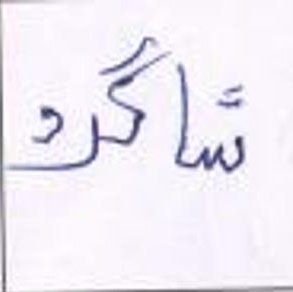 شاگرد